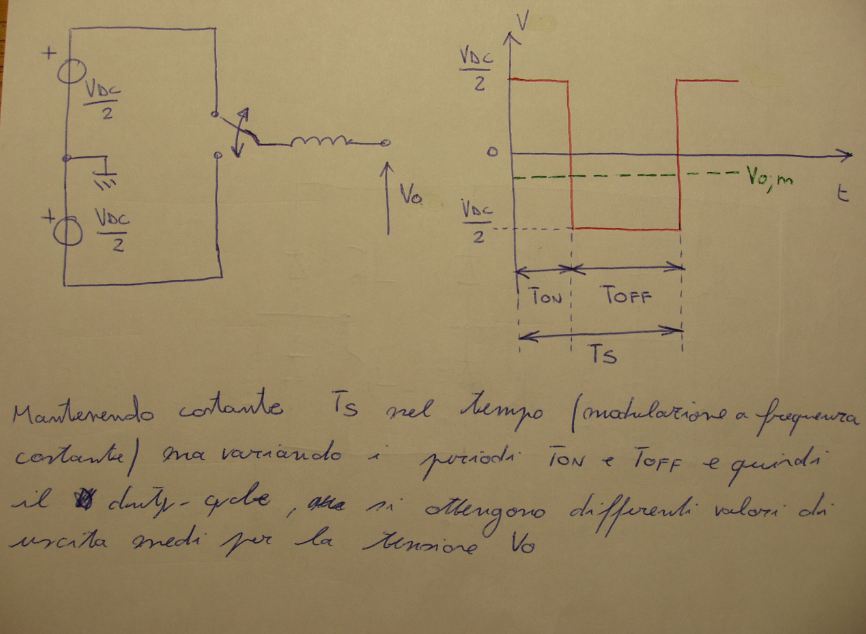 +
VDC
2
+
VDC
2
Vo
V
VDC
2
0
Vo,m
t
VDC
2
TON TOFF
TS
Mantenendo costante TS nel tempo (modulazione a frequenza
costante) ma variando i periodi TON e TOFF e quindi
il duty-cycle, si ottengono differenti valori di
uscita medi per la tensione Vo